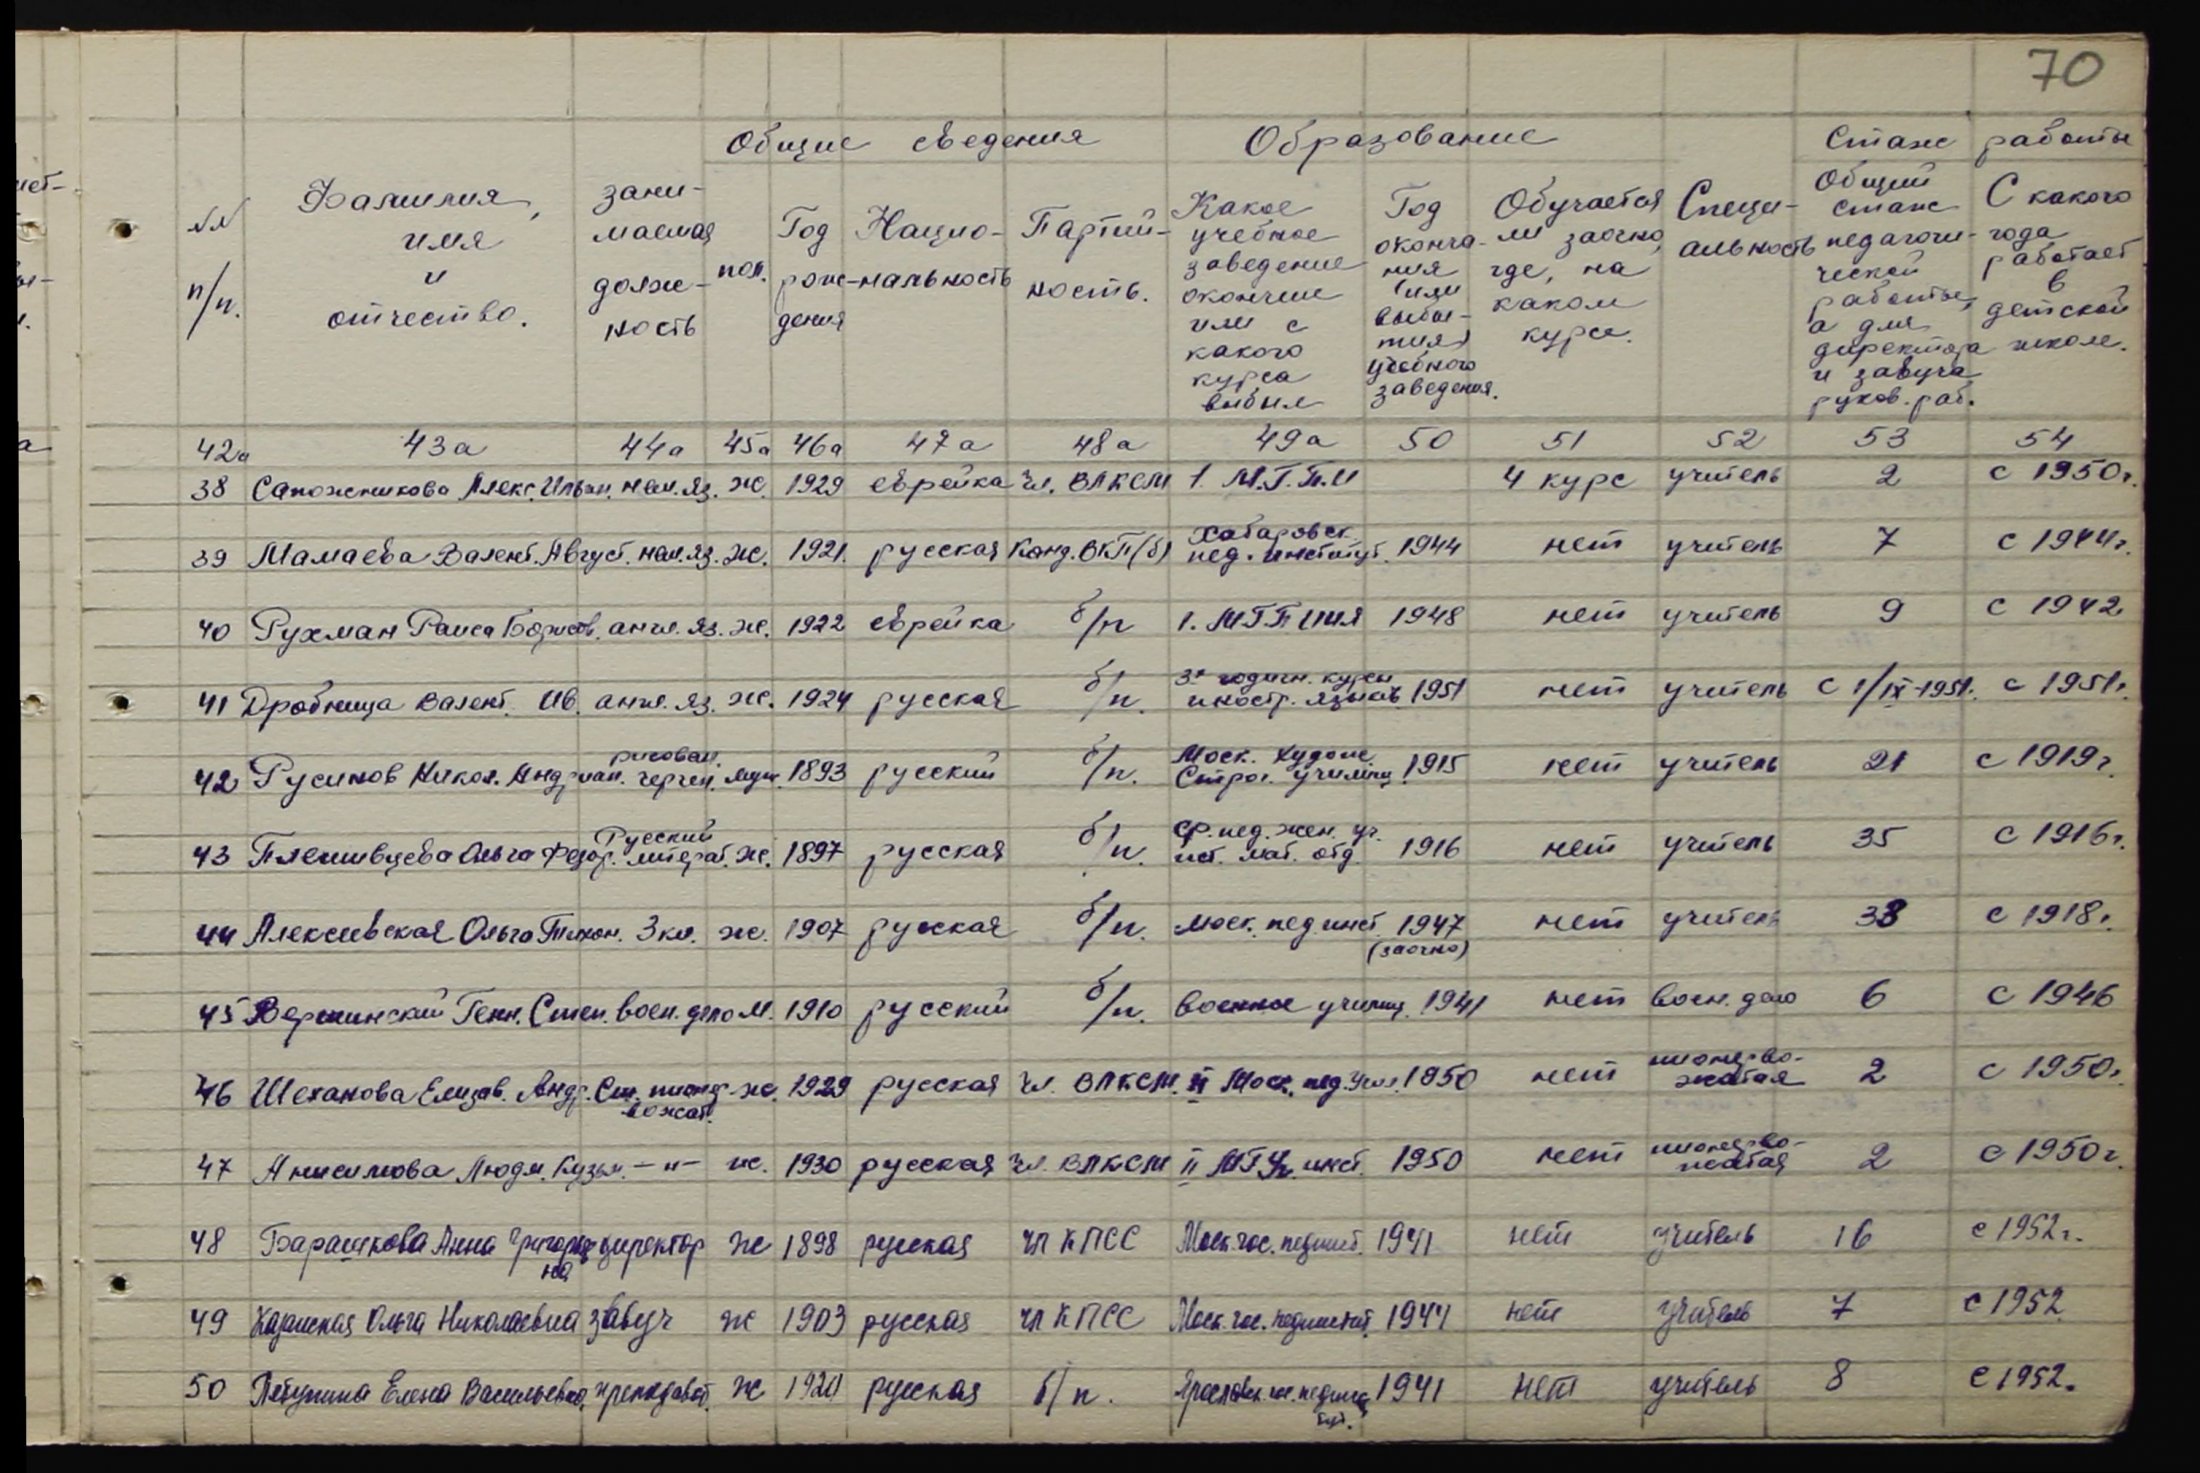 70
Общие сведения Образование Стаж работы
№№ п/п. Фамилия, имя и отчество. занимаемая долж-ность пол. Год рож-дения Нацио-нальность Партий-ность. Какое учебное заведение окончил или с какого курса выбыл Год оконча-ния (или выбы-тия) учебного заведения. Обучается ли заочно, где, на каком курсе. Специ-альность Общий стаж педагоги-ческой работы, а для директора и завуча руков. раб. С какого года работает в детской школе.
42а 43а 44а 45а 46а 47а 48а 49а 50 51 52 53 54
38 Сапожникова Алекс. Ильин. нем. яз. ж. 1929 еврейка чл. ВЛКСМ 1. М.Г.П.И 4 курс учитель 2 с 1950 г.
39 Мамаева Валент. Август. нем. яз. ж. 1921. русская Канд. ВКП(б) Хабаровск. пед. институт. 1944 нет учитель 7 с 1944 г.
40 Рухман Раиса Борисов. англ. яз. ж. 1922 еврейка б/п 1. МГПИИЯ 1948 нет учитель 9 с 1942
41 Дробница Валент. Ив. англ. яз. ж. 1924 русская б/п. 3х годичн. курсы иностр. языков 1951 нет учитель с 1/IX-1951. с 1951 г.
42 Русинов Никол. Андриан. рисован. черчен. муж. 1893 русский б/п. Моск. Худож. Строг. училищ. 1915 нет учитель 21 с 1919 г.
43 Плешивцева Ольга Федор. Русский литерат. ж. 1897 русская б/п. ср. пед. жен. уч. ист. мат. отд. 1916 нет учитель 35 с 1916 г.
44 Алексеевская Ольга Тихон. 3 кл. ж. 1907 русская б/п. Моск. пед. инст. 1947 (заочно) нет учитель 33 с 1918 г.
45 Вершинский Генн. Степ. воен. дело М. 1910 русский б/п. Военное училищ. 1941 нет воен. дело 6 с 1946
46 Шеханова Елизав. Андр. Ст. пионер-вожат. ж. 1929 русская чл. ВЛКСМ. II Моск. пед. Учил. 1950 нет пионерво-жатая 2 с 1950 г.
47 Анисимова Людм. Кузьм. -"- ж. 1930 русская чл. ВЛКСМ II МГУч. инст. 1950 нет пионерво-жатая 2 с 1950 г.
48 Барашкова Анна Григорьев-на директор ж 1898 русская чл КПСС Моск. гос. пединст. 1941 нет учитель 16 с 1952 г.
49 Ольга Николаевна завуч ж 1903 русская чл КПСС Моск. гос. пединстит. 1944 нет учитель 7 с 1952
50 Елена Васильевна преподават. ж русская б/п. Ярославск. гос. пединсти-тут. 1941 нет учитель 8 с 1952.